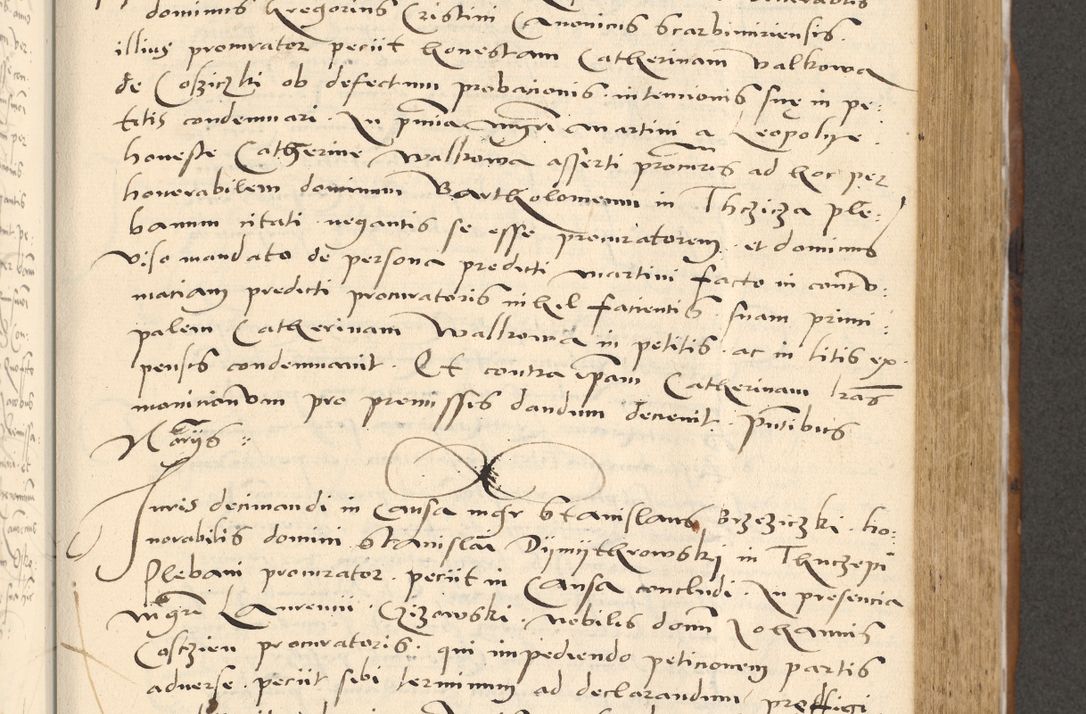 dominus Gregorius Cristini Canonicus Scarbimiriensis .
illius procurator peciit honestam Catherinam Valkowa
de Cosziczki ob defectum probacionis intencionis suę in pe:
titis condemnari . In pn̄ia mgr̄i Martini a Leopoli .
honeste Catherine Walkowa asserti procuris ad hoc per
honorabilem dominum Bartholomeum in Thczicza ple:
banum citati negantis se esse procuratorem . et dominus
viso mandato de persona predicti Martini facto in contu:
maciam predicti procuratoris nihel facientis suam princi:
palem Catherinam Walkowa in petitis . ac in litis ex:
pensis condemnavit . Et contra ip̄am Catherinam lr̄as
monicionum pro premissis dandum decrevit . Pn̄tibus
Nōriis :
Iuris decimandi in Causa mgr Stanislaus Brzeziczki . ho:
norabilis domini Stanislai Dymythrowski in Thuczepi
Plebani procurator . peciit in Causa concludi . In presencia
mgr̄i Laurencii Czizowski . nobilis domn̄ Iohannis
Cosczien procuratoris . qui impediendo peticionem partis
adverse . peciit sibi terminum ad declarandum preffigi